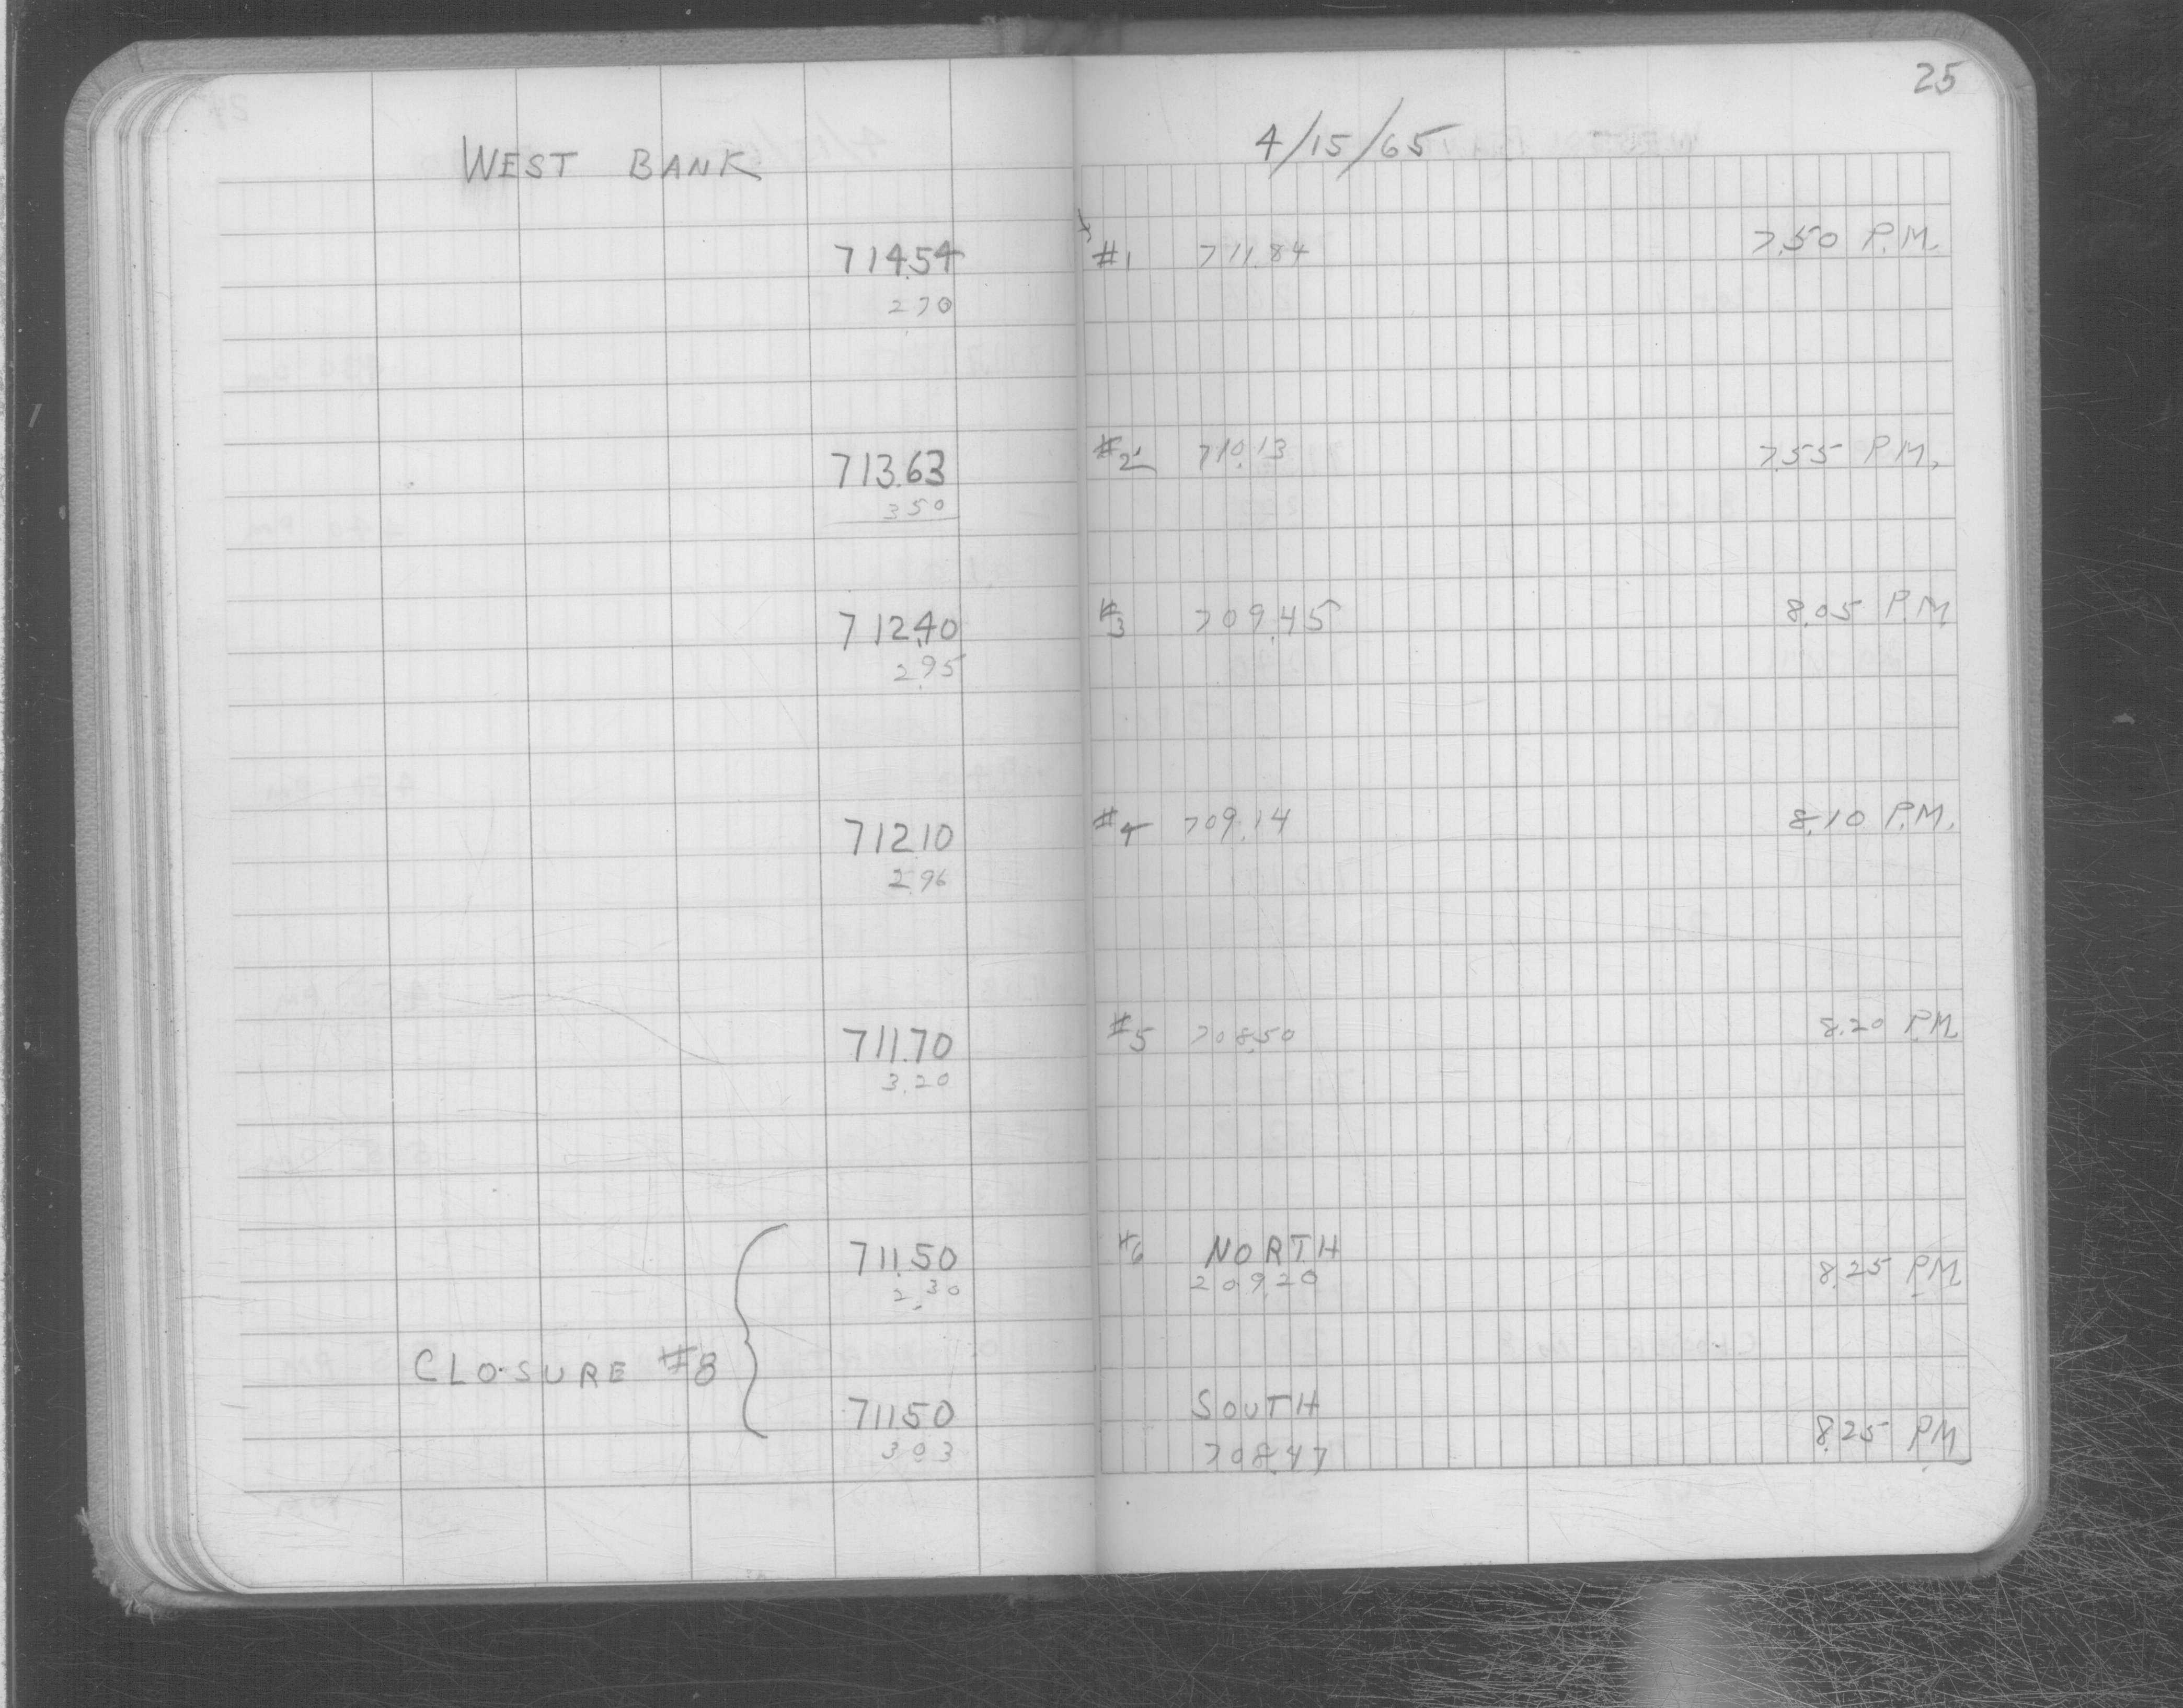 25
WEST BANK 4/15/65
714.54 #1 711.84 7.50 P.M.
2 70
713.63 #2 710.13 7.55 P.M.
3 50
712.40 #3 709.45 8.05 P.M.
2.95
712.10 #4 709.14 8.10 P.M.
2.96
711.70 #5 708.50 8.20 P.M.
3.20
711.50 #6 NORTH
2.30 209.20 8.25 P.M.
CLOSURE #8
711.50 SOUTH
3 03 708.47 8.25 P.M.